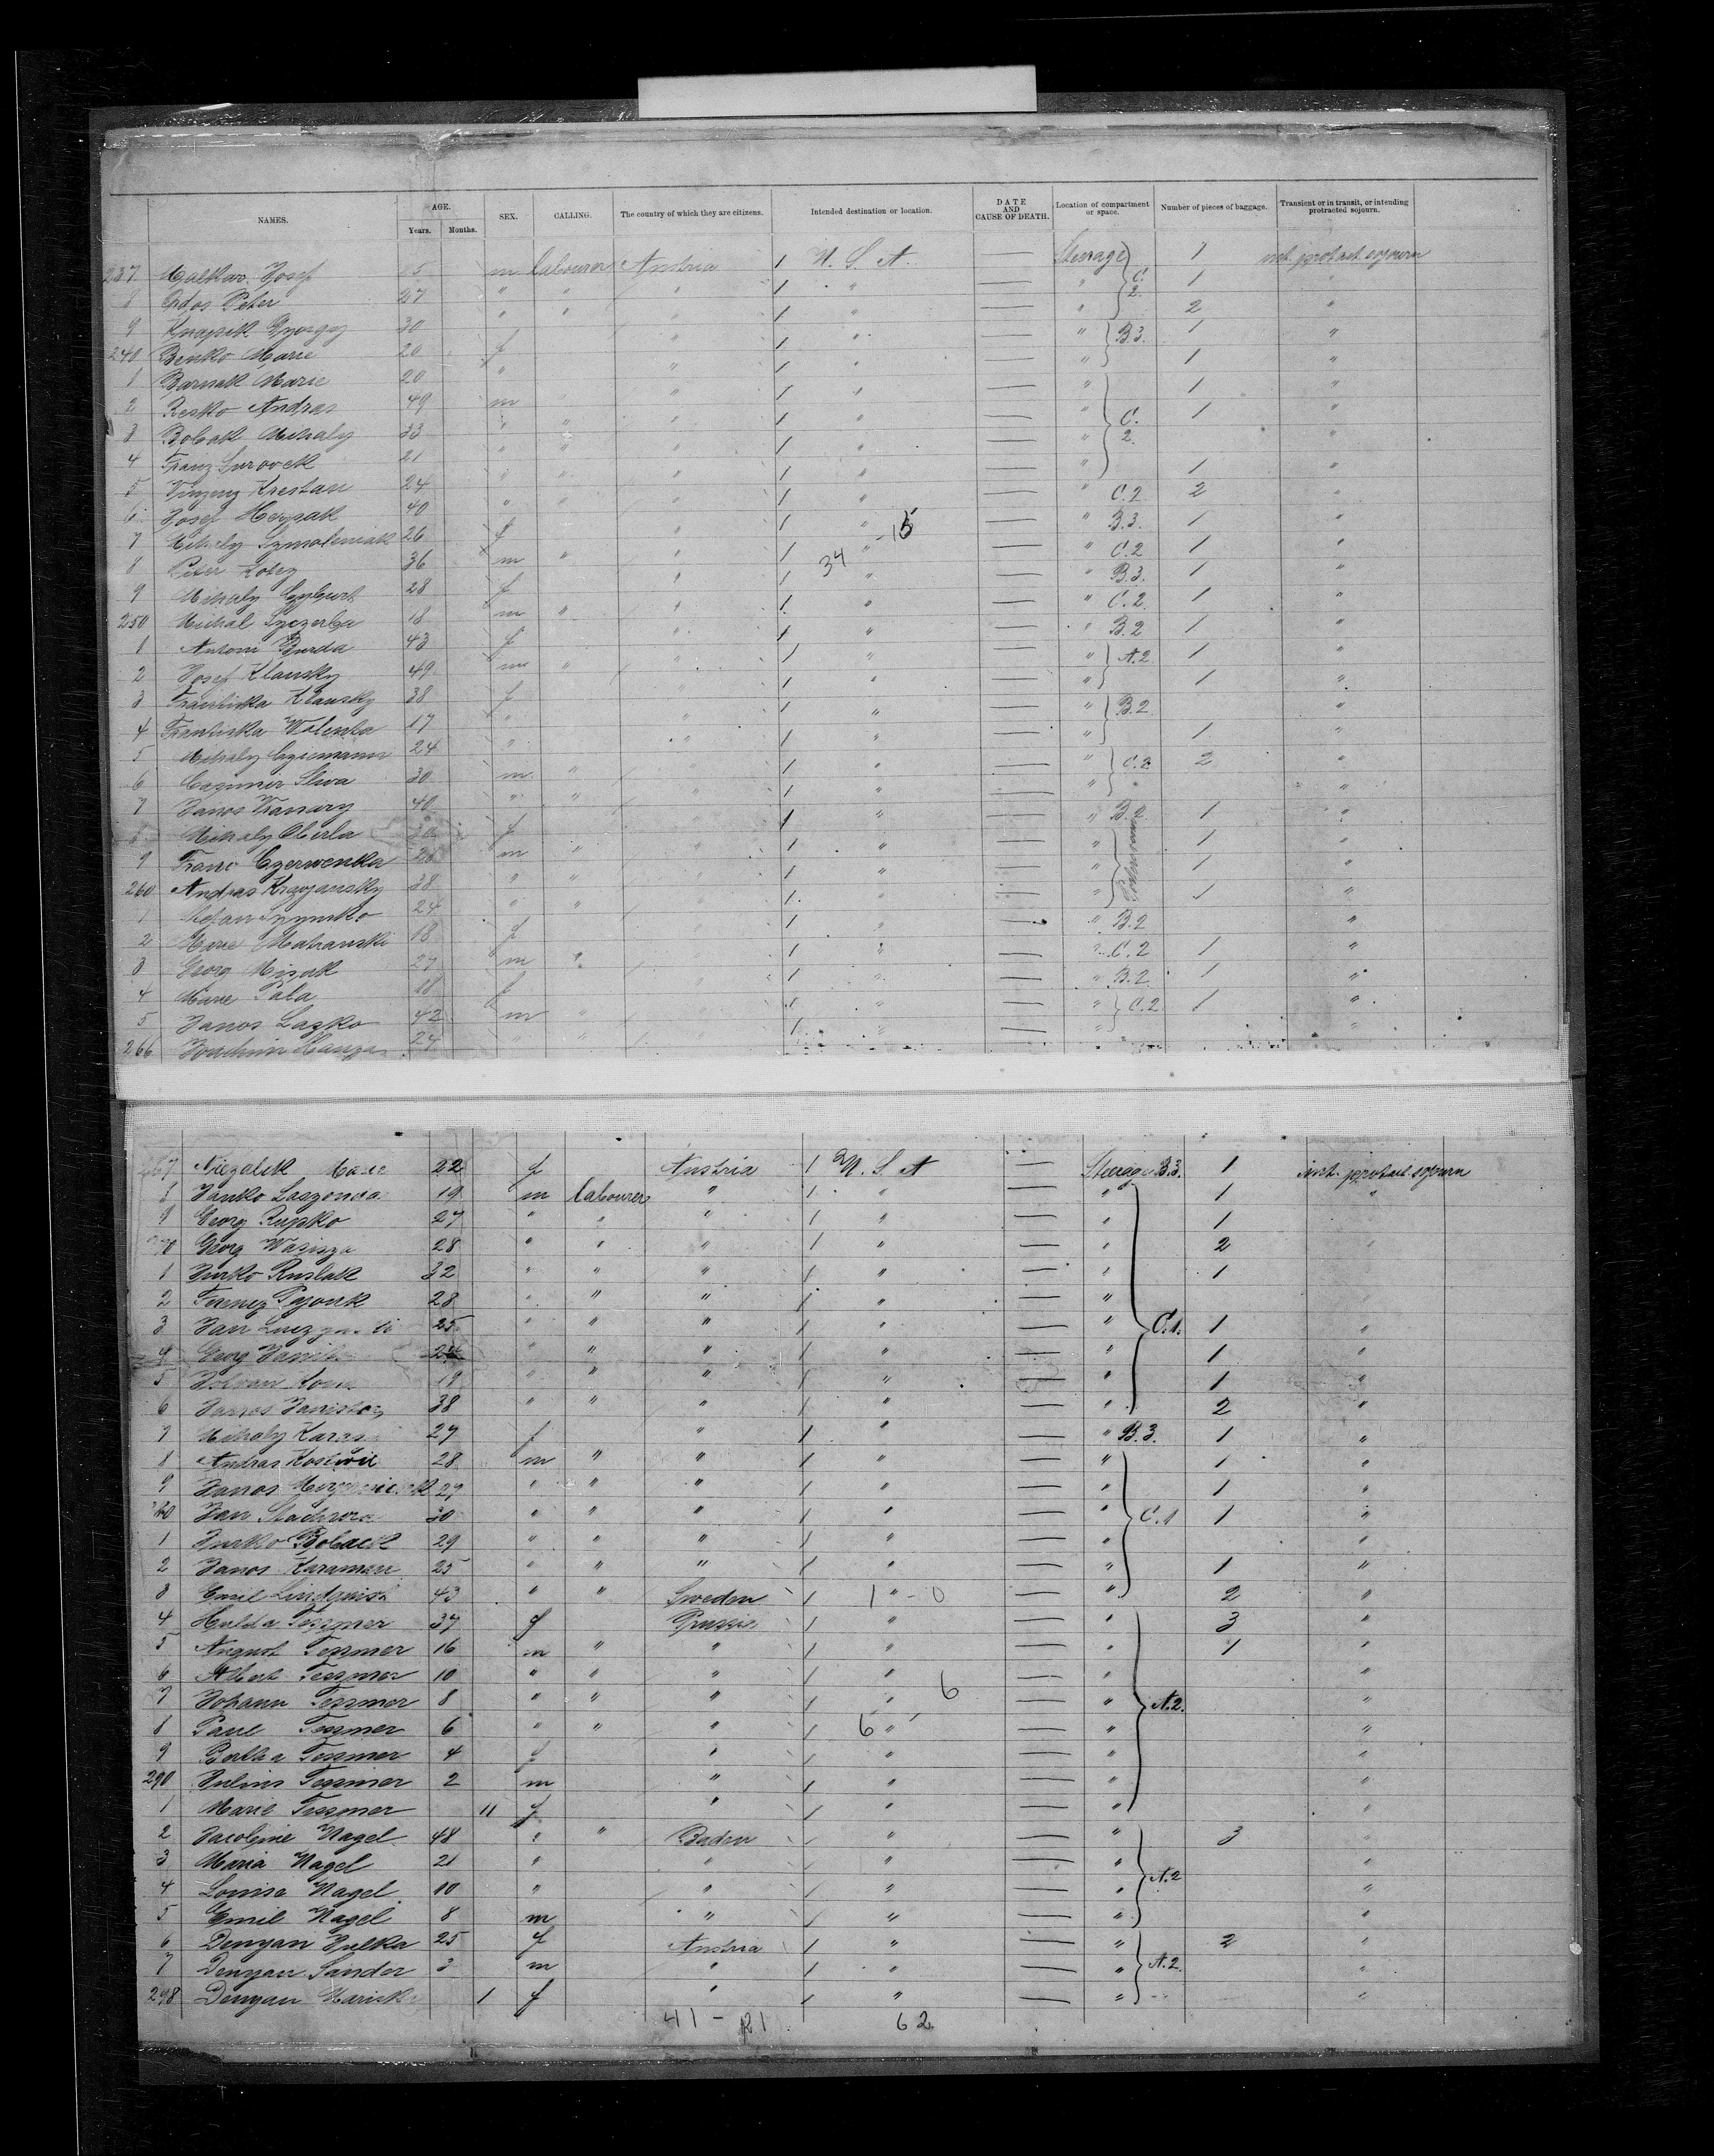 NAMES. AGE. Years. Months. SEX. CALLING. The country of which they are citizens. Intended destination or location. DATE AND CAUSE OF DEATH. Location of compartment or space. Number of pieces of baggage. Transient or in transit, or intending protracted sojourn.
237 Josef m Labourer Austria 1 U. S. A. — Steerage 1 int. protract. sojourn
8 Peter 27 " " " 1 " — " C. 2. 1 "
9 Knapik Gyorgy 30 " " " 1 " — " 2 "
240 Benko Marie 20 f " 1 " — " B.3. 1 "
1 Barnak Marie 20 " " 1 " — " 1 "
2 Resko Andras 49 m " " 1 " — " 1 "
3 Bobak Mihaly 33 " " " 1 " — " C. 2. 1 "
4 Franz Surovek 21 " " " 1 " — " "
5 Vinzenz Krestan 24 " " " 1 " — " 1 "
6 Josef 40 " " " 1 " — " C.2 2 "
7 Mihaly Szmoleniak 26 f " 1 " — " B.3. 1 "
8 Peter 36 m " " 1 34 " — " C.2 1 "
9 Mihaly 28 f " 1 " — " B.3. 1 "
250 Michal Szczerba 18 m " " 1 " — " C.2. 1 "
1 Antoni Burda 43 f " 1 " — " B.2 1 "
2 Josef Klansky 49 m " " 1 " — " A.2 1 "
3 Frantiska Klansky 38 f " 1 " — " 1 "
4 Frantiska Walenka 17 " " 1 " — " B.2 "
5 Mihaly 24 " " 1 " — " 1 "
6 Casimir Sliva 30 m " " 1 " — " C.2 2 "
7 Janos 40 " " " 1 " — " "
8 Mihaly 30 f " 1 " — " B.2. 1 "
9 Franc Czerwenka 28 m " " 1 " — " 1 "
260 Andras 38 " " " 1 " — " 1 "
1 Stefan 24 " " " 1 " — " 1 "
2 Marie 18 f " 1 " — " B.2 "
3 Georg Misak 27 m " " 1 " — " C.2 1 "
4 Marie Pala 18 f " 1 " — " B.2. 1 "
5 Janos Lazko 42 m " " 1 " — " C.2 1 "
266 Joachim 24 " " " 1 " — " "
267 22 f Austria 1 U. S. A — Steerage B.3. 1 int. protract. sojourn
8 Janko 19 m Labourer " 1 " — " 1 "
9 Georg Rupko 27 " " " 1 " — " 1
270 Georg 28 " " " 1 " — " 2 "
1 Jurko Ruslak 32 " " " 1 " — " 1
2 Ferencz Pajonk 28 " " " 1 " — "
3 Jan 25 " " " 1 " — " C.1. 1 "
4 Georg " " " 1 " — " 1 "
5 19 " " " 1 " — " 1 "
6 Janos 38 " " " 1 " — " 2 "
7 Mihaly 27 f " 1 " — " B.3. 1 "
8 Andras 28 m " " 1 " — " 1 "
9 Janos 27 " " " 1 " — " 1 "
280 Jan 30 " " " 1 " — " C.1 1 "
1 Jurko Boback 29 " " " 1 " — " "
2 Janos Karaman 25 " " " 1 " — " 1 "
3 Emil Lindquist 43 " " Sweden 1 1 " - 0 — " 2 "
4 Hulda Tessmer 37 f Prussia 1 " — " 3 "
5 August Tessmer 16 m " " 1 " — " 1 "
6 Albert Tessmer 10 " " " 1 " — " "
7 Johann Tessmer 8 " " " 1 " 6 — " A.2. "
8 Paul Tessmer 6 " " " 1 6 " — " "
9 Bertha Tessmer 4 f " 1 " — " "
290 Julius Tessmer 2 m " 1 " — " "
1 Marie Tessmer 11 f " 1 " — " "
2 Jacobine Nagel 48 " " Baden 1 " — " 3 "
3 Maria Nagel 21 " " 1 " — " "
4 Louisa Nagel 10 " " 1 " — " A.2 "
5 Emil Nagel 8 m " 1 " — " "
6 Denyan Julka 25 f Austria 1 " — " 2 "
7 Denyan Sandor 3 m " 1 " — " A.2. "
298 Denyan 1 f " 1 " — " "
41 - 21 62